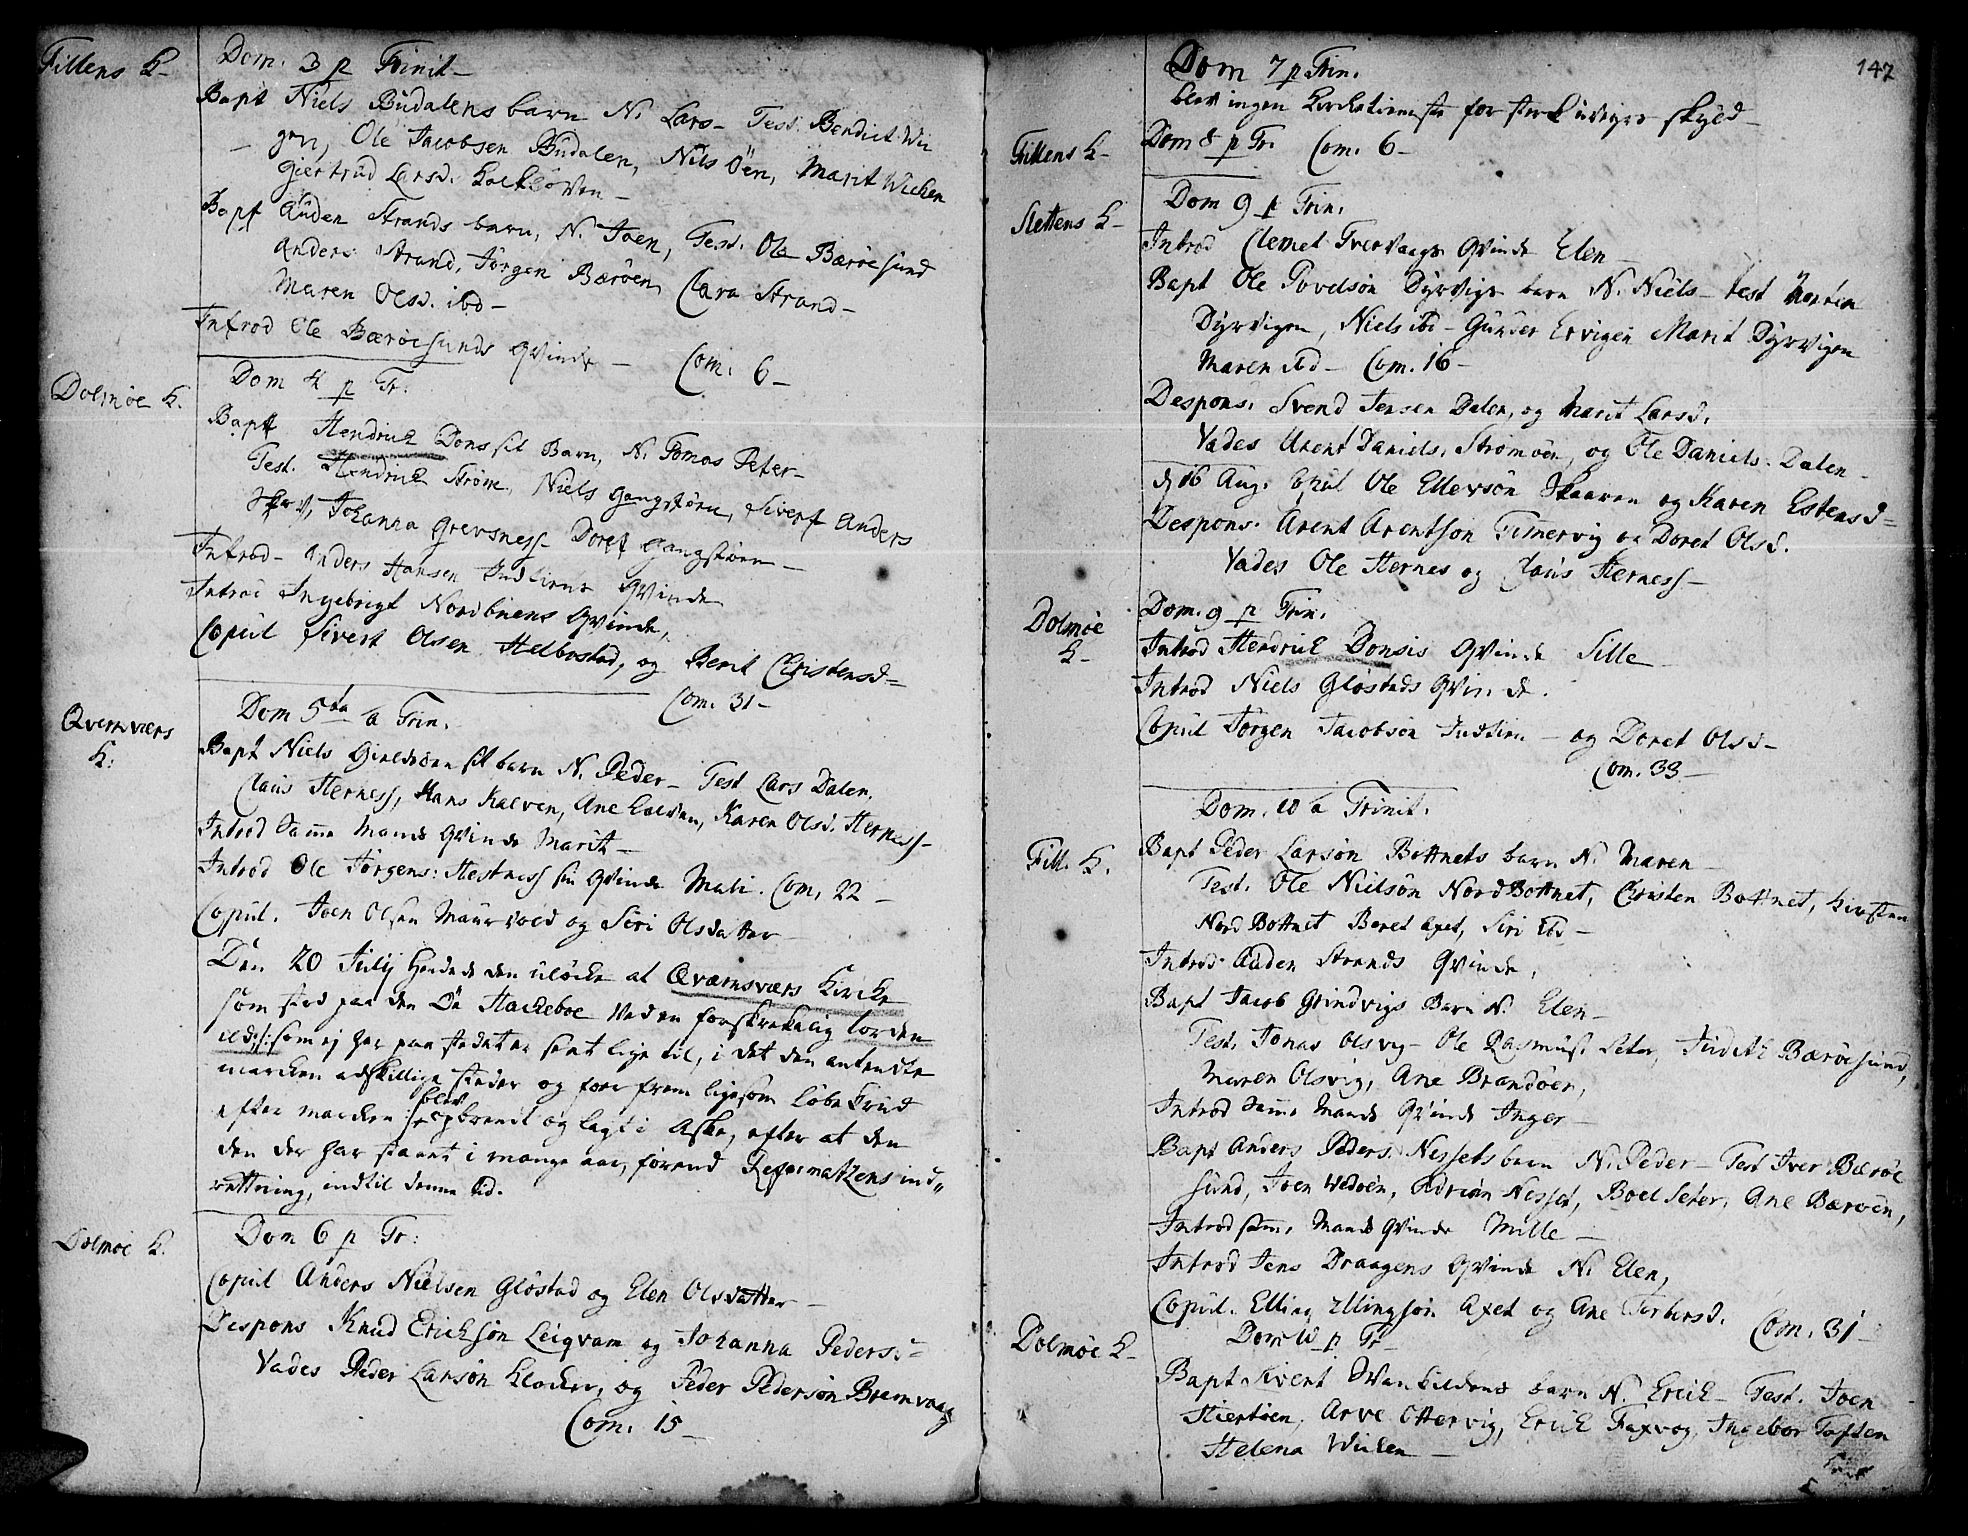 Fillens K-
Dom. 3 p Trinit-
Bapt Niels Büdalens barn N. Lars- Test. Bendict Wi
gen, Ole Jacobsen Büdalen, Nils Öen, Marit Wichen
Giertrud Larsd.
Bapt Auden Strands barn, N. Joen, Test. Ole Bærøesund
Anders Strand, Jørgen Bærøen, Clara Strand-
Maren Olsd. ibd-
Introd Ole Bærøesunds Qvinde - Com. 6-
Dolmøe K.
Dom 4 p Tr.
Bapt Hendrich Dons sit Barn, N. Tomas Peter-
Test. Hendrich Strøm, Niels Gangstøen, Sivert Anders
Johanna Grevsness Doret Gangstøen-
Introd- Anders Hansen Qvinde
Introd Ingebrigt Nordbüens Qvinde,
Copul Sivert Olsen Helbostad, og Berit Christensd=
Com. 31-
Qvernvers
K:
Dom 5ta a Trin.
Bapt Niels sit barn N. Peder- Test Lars Dalen,
Claus Herness, Hans Kalven, Ane Karen Olsd. Herness-
Introd Samme Mands Qvinde Marit-
Introd Ole Jørgens: Hestness sin Qvinde Mali. Com, 22-
Copul. Joen Olsen Maurvold og Siri Olsdatter-
Den 20 July hendede den ulöcke at Qværnsværs Kircke
som stod paa den Öe Hackeboe ved en forskrekelig torden
ild /: som ej her paa stedet er seet lige til, i det den antendte
marcken adskillige steder og foer frem ligesom løbe Krud
efter marcken :/ blev opbrendt og lagt i Aske, efter at den
den der har staaet i mange aar, førend Reformatzens ind"
rettning, indtil denne tid.
Dolmøe K.
Dom 6 p Tr:
Copul Anders Nielsen Gløstad og Elen Olsdatter-
Despons Knud Erichsøn Leiqvam og Johanna Pedersd=
Vades Peder Larsøn og Peder Pedersøn Bremvaag
Com. 15-
147
Dom 7 p Trin.
blev ingen Kircketieneste for sterk uveyrs skyld-
Fillens K-
Dom 8 p Tr. Com. 6-
Slettens K-
Dom 9 p Trin.
Introd Clemet Tvervaags Qvinde Elen-
Bapt Ole Povelsøn Dyrvigs barn N. Niels- test Morten
Dyrvigen, Niels ibd- Gunder Ervigen Marit Dyrvigen
Maren ibd- Com. 16-
Despons. Svend Jensen Dalen, og Marit Larsd.
Vades Arent Daniels. Strømøen, og Ole Daniels. Dalen-
d 16 Aug. Copul Ole Ellevsøn Skaaren og Karen Estensd=
Despons. Arent Arentsøn Timervig og Doret Olsd.
Vades Ole Hernes og Claus Herness-
Dolmøe
K-
Dom. 9 p Trin.
Introd Hendrich Donsis Qvinde Sille
Introd Niels Gløstads Qvinde.
Copul Jørgen Jacobsøn - og Doret Olsd-
Com. 33-
Dom. 10 a Trinit.
Fill. K.
Bapt Peder Larsøn Bottnets barn N. Maren-
Test. Ole Nielsøn Nord Bottnet, Christen Bottnet, Kirsten
Nord Bottnet Beret Axet, Siri Ibd-
Introd Auden Strands Qvinde,
Bapt Jacob Grindvigs Barn N. Elen-
Test. Jonas Olsvig- Ole Rasmus. Seter, Judith Bærøesund,
Maren Olsvig, Ane Brandøen,
Introd Samme Mands Qvinde Inger-
Bapt Anders Peders. Nessets barn N. Peder- Test Iver Bærøe
sund, Joen Wedøen, Adrian Nesset, Boel Seter, Ane Bærøen,
Introd samme Mands Qvinde Mille-
Introd Jens Draagens Qvinde N. Elen,
Copul. Elling Ellingsøn Axet og Ane Torbersd. Com. 31-
Dolmøe K-
Dom 10 p Tr
Bapt Sivert barn N. Erich- Test. Joen
Hiertøen, Arve Ottervig, Erich Faxvog, Ingebor Toften
Helena Wichen-